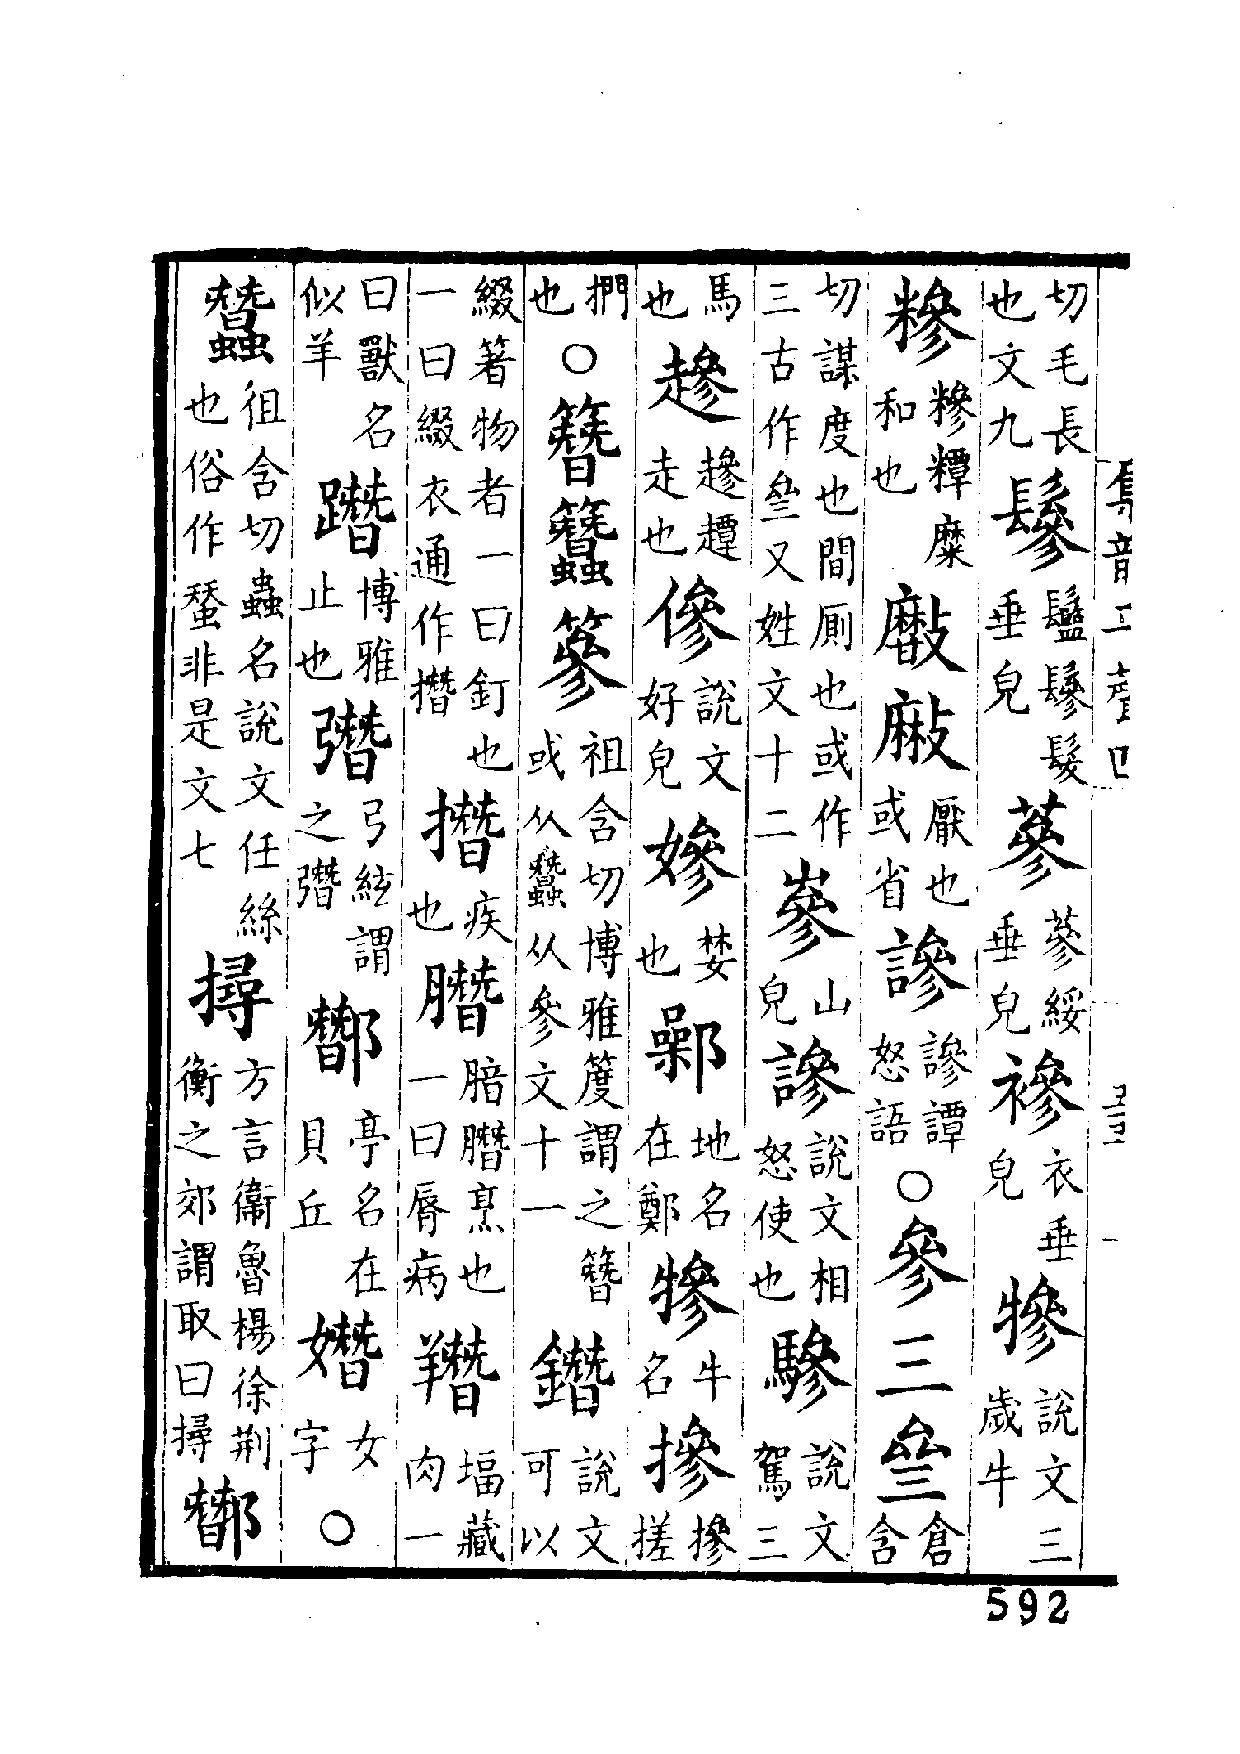 集韻平聲四
切毛長也文九鬖鬖髮垂皃蔘蔘綏垂皃襂衣垂皃犙說文三歲牛
糝糝糜和也厭也或省謲謲譚怒語○參三曑倉含
切謀度也間厠也或作三古作曑又姓文十二嵾山皃謲說文相怒使也驂說文駕三
馬也走也傪說文好皃嬠婪也鄵地名在鄭犙牛名摻摻搓
捫也○簪篸祖含切博雅謂之簪或从蠶从參文十一鐕說文可以
綴箸物者一曰釘也一曰綴衣通作撍撍疾也腤烹也一曰脣病塭藏肉一
曰獸名似羊博雅止也弓絃謂之亭名在貝丘女字○
蠶徂含切蟲名說文任絲也俗作蝅非是文七撏方言衞魯楊徐荆衡之郊謂取曰撏
592